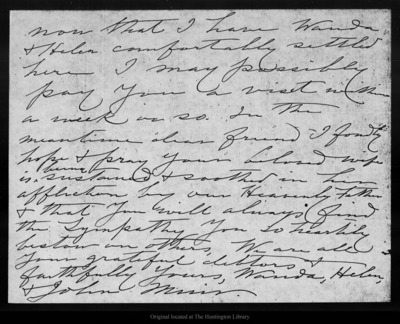 now that I have Wanda
& Helen comfortably settled
here I may possibly
pay you a visit within
a week or so. In the
meantime dear friend I fondly
hope & pray your beloved wife
is being sustained & soothed in her
affliction by our Heavenly Father
& that you will always find
the sympathy you so heartily
bestow on others. We are all
your grateful debtors &
faithfully yours, Wanda, Helen,
& John Muir
Original located at The Huntington Library